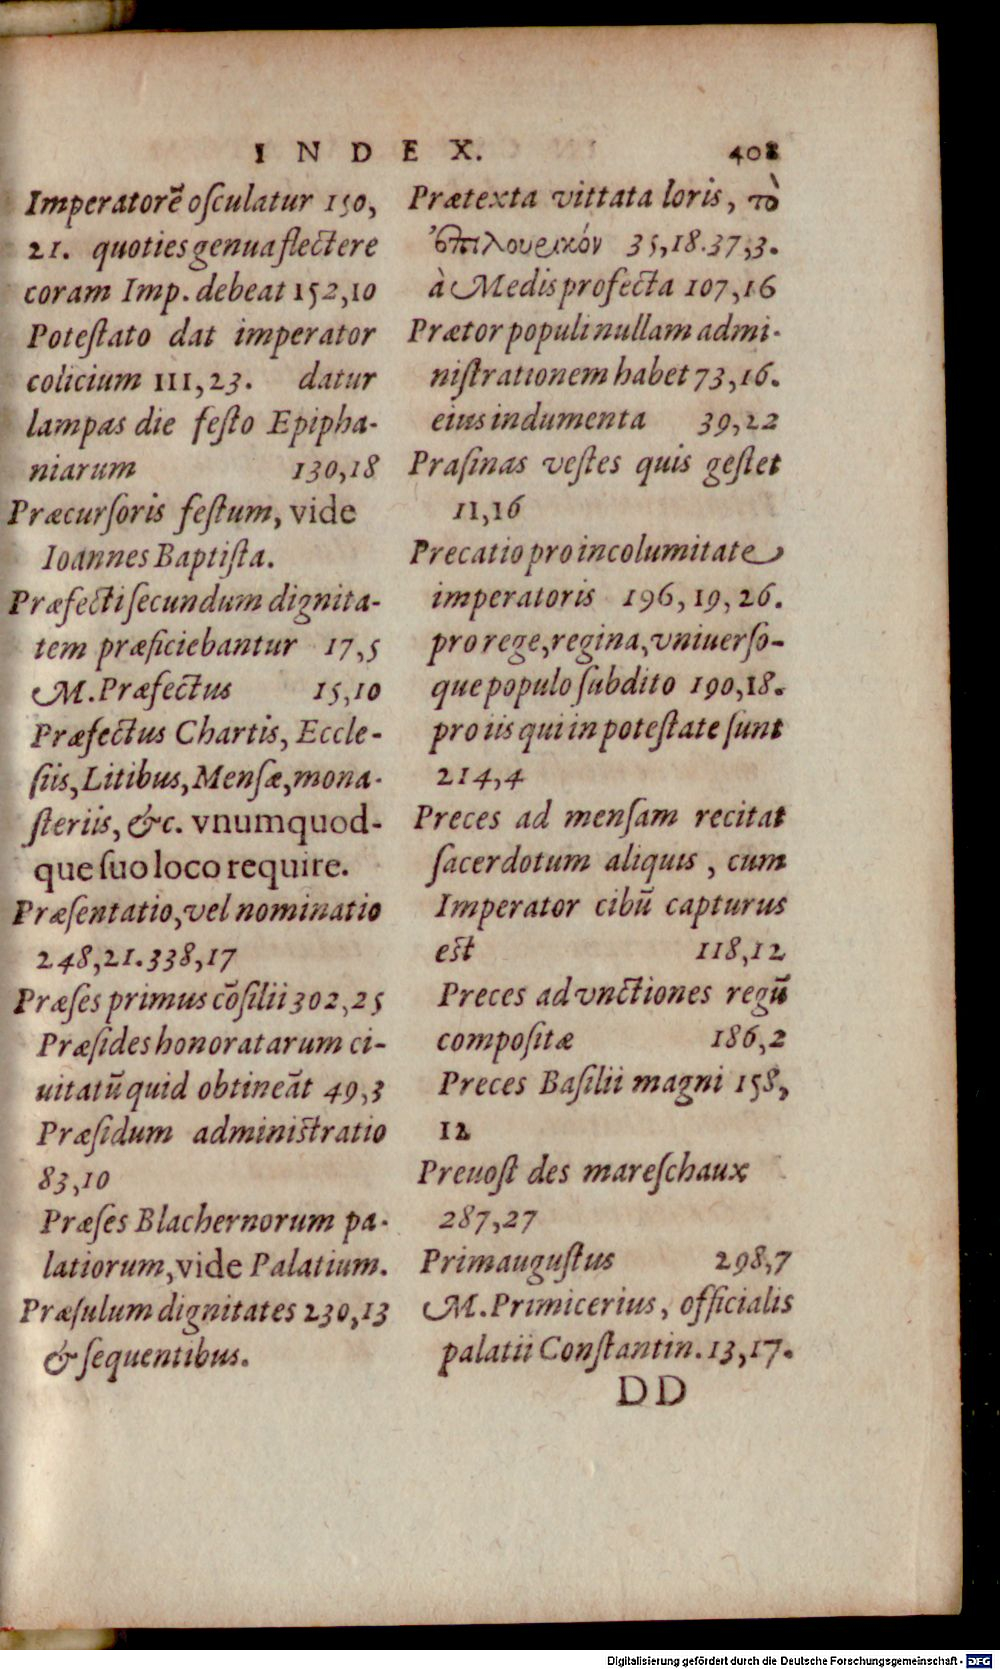 INDEX. 408
Imperatorē osculatur 150,
21. quoties genua flectere
coram Imp. debeat 152,10
Potestato dat imperator
colicium 111,23. datur
lampas die festo Epipha-
niarum 130,18
Præcursoris festum, vide
Ioannes Baptista.
Præfecti secundum dignita-
tem præficiebantur 17,5
M. Præfectus 15,10
Præfectus Chartis, Eccle-
siis, Litibus, Mensæ, mona-
steriis, &c. vnumquod-
que suo loco require.
Præsentatio, vel nominatio
248,21. 338,17
Præses primus cōsilii 302,25
Præsides honoratarum ci-
uitatū quid obtineāt 49,3
Præsidum administratio
83,10
Præses Blachernorum pa-
latiorum, vide Palatium.
Præsulum dignitates 230,13
& sequentibus.
Prætexta vittata loris, τὸ
35,18. 37,3.
à Medis profecta 107,16
Prætor populi nullam admi-
nistrationem habet 73,16.
eius indumenta 39,22
Prasinas vestes quis gestet
11,16
Precatio pro incolumitate
imperatoris 196, 19, 26.
pro rege, regina, vniuerso-
que populo subdito 190,18.
pro iis qui in potestate sunt
214,4
Preces ad mensam recitat
sacerdotum aliquis, cum
Imperator cibū capturus
est 118,12
Preces ad vnctiones regū
compositæ 186,2
Preces Basilii magni 158,
12
Preuost des mareschaux
287,27
Primaugustus 298,7
M. Primicerius, officialis
palatii Constantin. 13,17.
DD
Digitalisierung gefördert durch die Deutsche Forschungsgemeinschaft - DFG